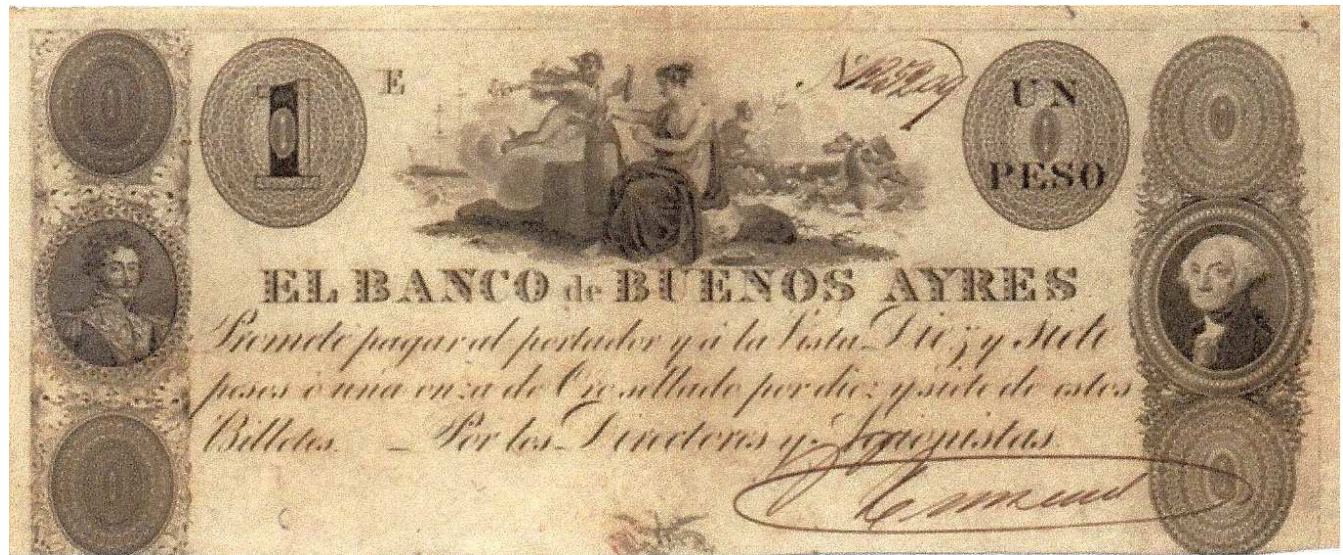 1
E
UN
PESO
EL BANCO de BUENOS AYRES
Promete pagar al portador y à la Vista Diez y Siete
pesos ò una onza de Oro sellado por diez y siete de estos
Billetes. _ Por los Directores y Accionistas